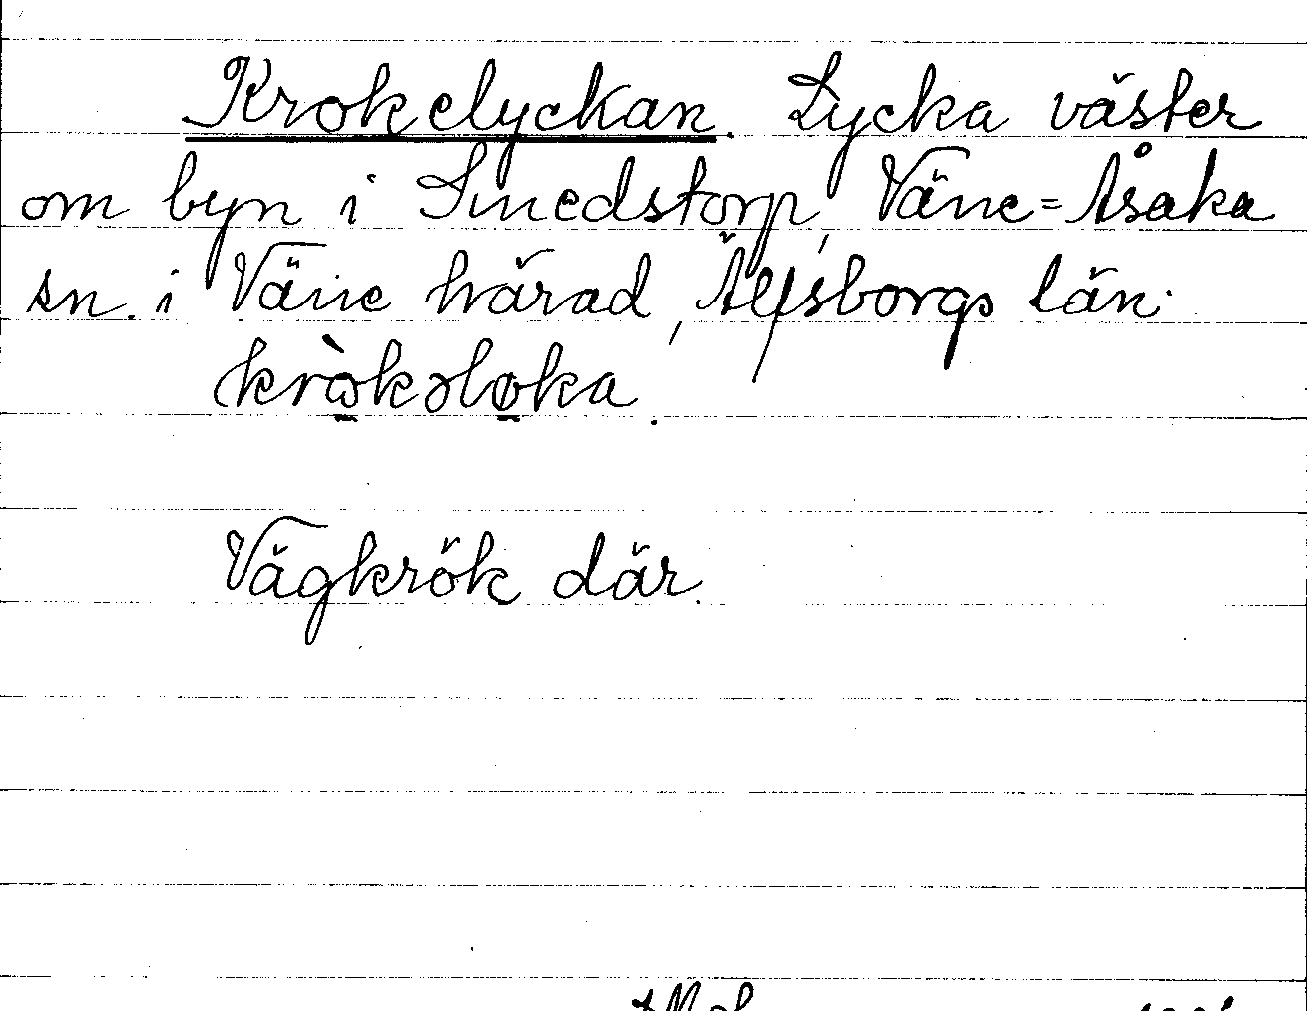 Krokelyckan. Lycka väster
om byn i Smedstorp, Väne=Åsaka
sn. i Väne härad, Älfsborgs län.
krὼkəløka.
Vägkrök där.